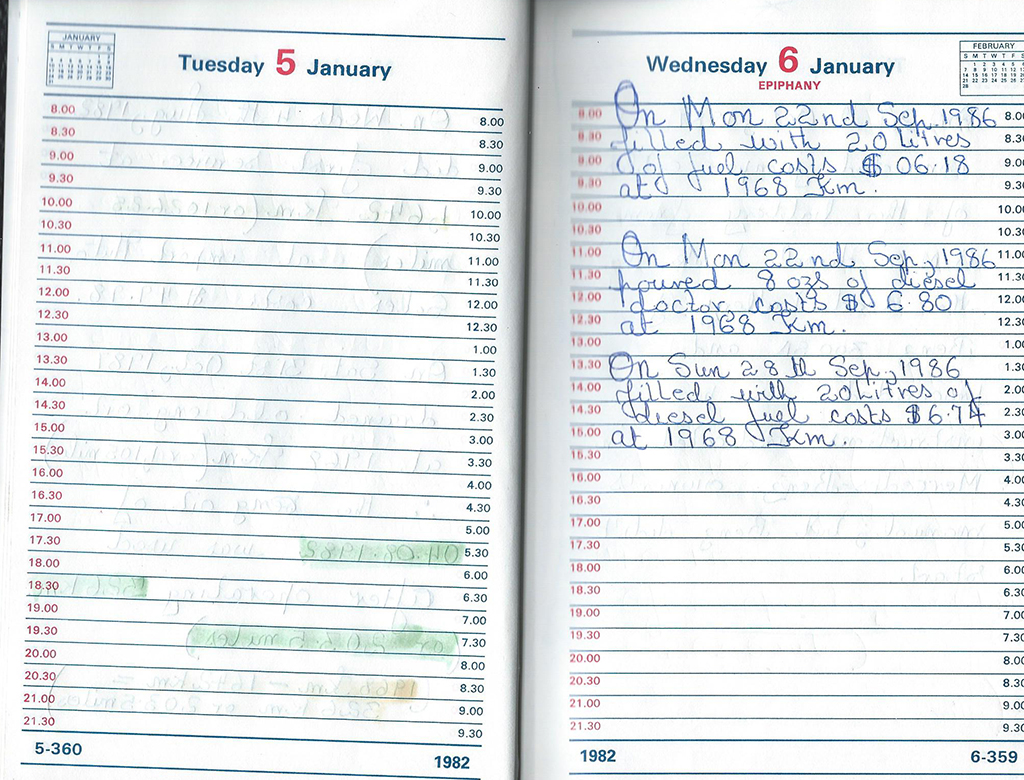 JANUARY
S M T W T F S
Tuesday 5 January
8.00 8.00
8.30 8.30
9.00 9.00
9.30 9.30
10.00 10.00
10.30 10.30
11.00 11.00
11.30 11.30
12.00 12.00
12.30 12.30
13.00 1.00
13.30 1.30
14.00 2.00
14.30 2.30
15.00 3.00
15.30 3.30
16.00 4.00
16.30 4.30
17.00 5.00
17.30 5.30
18.00 6.00
18.30 6.30
19.00 7.00
19.30 7.30
20.00 8.00
20.30 8.30
21.00 9.00
21.30 9.30
5-360 1982
Wednesday 6 January
EPIPHANY
FEBRUARY
S M T W T F S
1 2 3 4 5 6
7 8 9 10 11 12 13
14 15 16 17 18 19 20
21 22 23 24 25 26 27
28
8.00 On Mon 22nd Sep, 1986 8.00
8.30 filled with 20 litres 8.30
9.00 of fuel costs $ 06.18 9.00
9.30 at 1968 Km. 9.30
10.00 10.00
10.30 10.30
11.00 On Mon 22nd Sep, 1986 11.00
11.30 poured 8 ozs of diesel 11.30
12.00 doctor costs $ 6.80 12.00
12.30 at 1968 Km. 12.30
13.00 1.00
13.30 On Sun 28th Sep, 1986 1.30
14.00 filled with 20 Litres of 2.00
14.30 diesel fuel costs $6.74 2.30
15.00 at 1968 Km. 3.00
15.30 3.30
16.00 4.00
16.30 4.30
17.00 5.00
17.30 5.30
18.00 6.00
18.30 6.30
19.00 7.00
19.30 7.30
20.00 8.00
20.30 8.30
21.00 9.00
21.30 9.30
1982 6-359